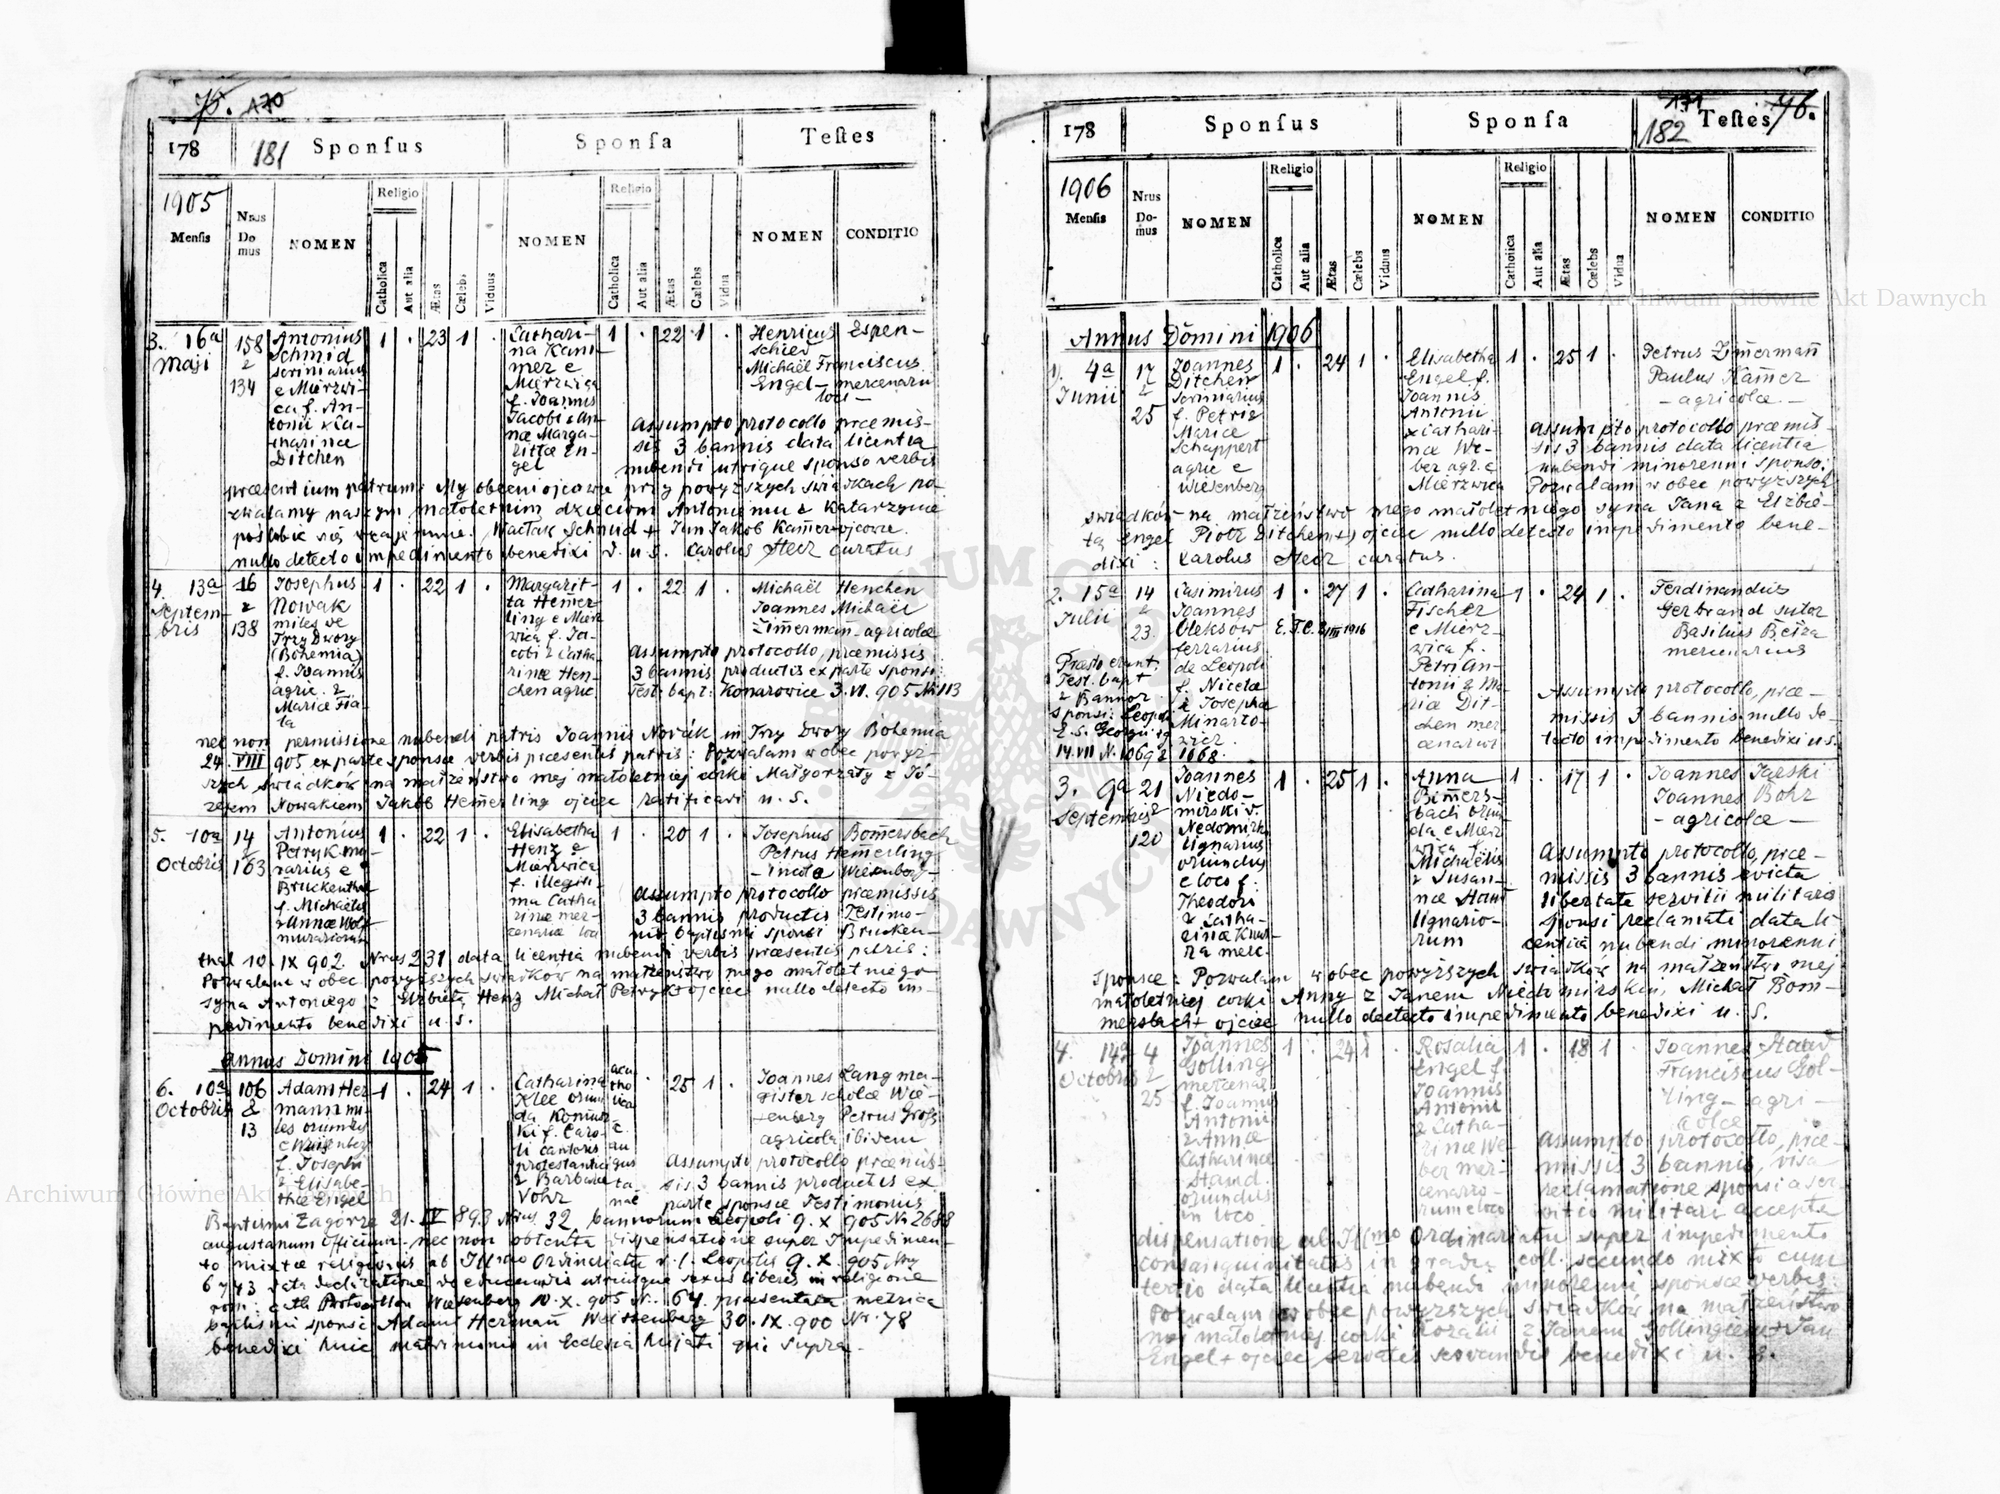 75. 170
178 181 Sponſus Sponſa Teſtes
1905
Menſis Nrus Domus NOMEN Religio Catholica Aut alia Ætas Cælebs Viduus NOMEN Religio Catholica Aut alia Ætas Cælebs Vidua NOMEN CONDITIO
3. 16a Maji
158 & 134
Antonius
Schmid
scriniarius
e Mierzwi-
ca f. An-
tonii & Ca-
tharinæ
Ditchen
1 . 23 1 .
Cathari-
na Kam-
mer e
Mierzwica
f. Joannis
Jacobi & An-
næ Marga-
rittæ En-
gel
1 . 22 1 .
Henricus Espen-
schied
Michaël Franciscus
Engel - mercenarii
loci -
assumpto protocollo præmis-
sis 3 bannis data licentia
nubendi utrique sponso verbis
præsentium patrum: My obecni ojcowie przy powyższych świadkach po-
zwalamy naszym małoletnim dzieciom Antoniemu & Katarzynie
poślubić się wzajemnie. Wacław Schmid + Jan Jakob Kam̅er ojcowie.
nullo detecto impedimento benedixi d. u. s. Carolus Hecz curatus
4. 13a Septem-
bris
16 & 138
Josephus
Nowak
miles de
Trzy Dwory
(Bohemia)
f. Joannis
agric. &
Mariæ Fia-
la
1 . 22 1 .
Margarit-
ta Hem̅er-
ling e Mierz-
wica f. Ja-
cobi & Catha-
rinæ Hen-
chen agric.
1 . 22 1 .
Michaël Henchen
Joannes Michaël
Zim̅erman̅ - agricolæ
assumpto protocollo, præmissis
3 bannis productis ex parte sponsi
Test. bapt: Konarowice 3. VI. 905 № 113
nec non permissione nubendi patris Joannis Novák in Trzy Dwory Bohemia
24. VIII 905 ex parte sponsæ verbis præsentis patris: Pozwalam w obec powyż-
szych świadków na małżeństwo mej małoletniej córki Małgorzaty z Jó-
zefem Nowakiem Jakób Hem̅erling ojciec ratificavi u. s.
5. 10a
Octobris
14 & 163
Antonius
Petryk mu-
rarius e
Bruckenthal
f. Michaëlis
& Annæ Wolf
murariorum
1 . 22 1 .
Elisabetha
Henz e
Mierzwica
f. illegiti-
ma Catha-
rinæ mer-
cenariæ loci
1 . 20 1 .
Josephus Bom̅ersbach
Petrus Hem̅erling
- incolæ Wiesenberg -
assumpto protocollo præmissis
3 bannis productis Testimo-
nio baptismi sponsi Brucken-
thal 10. IX 902. Nrus 231 data licentia nubendi verbis præsentis patris:
Pozwalam w obec powyższych świadków na małżeństwo mego małoletniego
syna Antoniego z Elżbietą Henz Michał Petryk ojciec nullo detecto im-
pedimento benedixi u. s.
Annus Domini 1905
6. 10a
Octobris
106 & 13
Adam Her-
mann mi-
les oriundus
e Weissenberg
f. Josephi
& Elisabe-
thæ Engel
1 . 24 1 .
Catharina
Klee oriun-
da
ki f. Caro-
li cantoris
protestantici
& Barbaræ
Vohr
. 25 1 .
Joannes Lang ma-
gister scholæ Wie-
senberg Petrus Groß
agricola ibidem
assumpto protocollo præmis-
sis 3 bannis productis ex
parte sponsæ Testimonius
Baptismi Zagórze 21. IV 893 Nrus 32 bannorum Leopoli 9. X 905 № 2688
augustanum officium nec non obtenta dispensatione super Impedimen-
to mixtæ religionis ab Illmo Ordinariatu r. l. Leopolis 9. X. 905 Nrus
6743 data declaratione de educandis utriusque sexus liberis in religione
rom: cath Protocollon Wiesenberg 10. X. 905 N. 64. præsentata metrica
baptismi sponsi Adami Herman̅ Weissenberg 30. IX. 900 Nr. 78
benedixi huic matrimonio in Ecclesia hujati qui supra -
171 76.
178 Sponſus Sponſa 182 Teſtes
1906
Menſis Nrus Domus NOMEN Religio Catholica Aut alia Ætas Cælebs Viduus NOMEN Religio Catholica Aut alia Ætas Cælebs Vidua NOMEN CONDITIO
Annus Domini 1906
1). 4a
Junii
17 & 25
Joannes
Ditchen
scriniarius
f. Petri &
Mariæ
Schappert
agric e
Wiesenberg
1 . 24 1 .
Elisabetha
Engel f.
Joannis
Antonii
& Cathari-
næ We-
ber agr. e
Mierzwica
1 . 25 1 .
Petrus Zim̅erman̅
Paulus Kam̅er
- agricolæ. -
assumpto protocollo præmis-
sis 3 bannis data licentia
nubendi minorenni sponso:
Pozwalam w obec powyższych
świadków na małżeństwo mego małoletniego syna Jana z Elżbie-
tą Engel Piotr Ditchen + ojciec nullo detecto impedimento bene-
dixi: Karolus Hecz curatus.
2. 15a
Julii
14 & 23.
Casimirus
Joannes
Oleksów
ferrarius
de Leopoli
f. Nicetæ
& Josephæ
Minarto-
wicz.
1 . 27 1 .
E. T. C. 2/III 1916
Præsto erunt:
Test. bapt
& Bannor.
sponsi: Leopoli
E. S. Georgii
14. VII N. 1069 & 1068.
Catharina
Fischer
e Mierz-
wica f.
Petri An-
tonii & Ma-
riæ Dit-
chen mer-
cenarior.
1 . 24 1 .
Ferdinandus
Gerbrand sutor
Basilius Bęcza
mercenarius
Assumpto protocollo, præ-
missis 3 bannis nullo de-
tecto impedimento benedixi u. s.
3. 9a
Septembris
21 & 120
Joannes
Niedo-
mirski v.
Nedomirki
lignarius
oriundus
e loco f:
Theodori
& Catha-
rinæ Kmi-
ra merc.
1 . 25 1 .
Anna
Bim̅ers-
bach oriun-
da e Mierz-
wica f.
Michaëlis
& Susan-
næ Ham
lignario-
rum
1 . 17 1 .
Joannes Jarski
Joannes Bohr
- agricolæ -
assumpto protocollo, præ-
missis 3 bannis evicta
libertate servitii militaris
sponsi reclamati data li-
centia nubendi minorenni
sponsæ: Pozwalam w obec powyższych świadków na małżeństwo mej
małoletniej córki Anny z Janem Niedomirskim, Michał Bom-
mersbach + ojciec nullo dectecto impedimento benedixi u. s.
4. 14a
Octobris
4 & 25
Joannes
Golling
mercenar
f. Joannis
Antonii
& Annæ
Catharinæ
Stand.
oriundus
in loco
1 . 24 1 .
Rosalia
Engel f.
Joannis
Antonii
& Catha-
rinæ We-
ber mer-
cenario-
rum e loco
1 . 18 1 .
Joannes
Franciscus Gol-
ling - agri-
colæ
assumpto protocollo, præ-
missis 3 bannis, visa
reclamatione sponsi a ser-
vitio militari accepta
dispensatione ab Illmo Ordinariatu super impedimento
consanguinitatis in gradu coll. secundo mixto cum
tertio data licentia nubendi minorenni sponsæ verbis:
Pozwalam w obec powyższych świadków na małżeństwo
mej małoletniej córki Rozalii z Janem Gollingiem + Jan
Engel + ojciec, servatis servandis benedixi u. s.
Archiwum Główne Akt Dawnych
Archiwum Główne Akt Dawnych